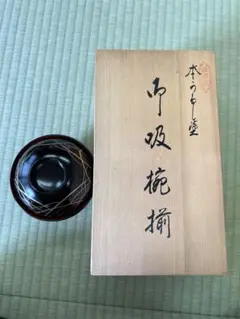 本うるし塗
御吸椀揃